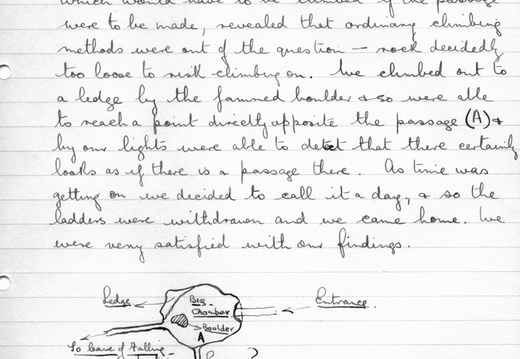 which would have to be climbed if the passage
were to be made, revealed that ordinary climbing
methods were out of the question — rock decidedly
too loose to risk climbing on. We climbed out to
a ledge by the jammed boulder & so were able
to reach a point directly opposite the passage (A) &
by our lights were able to detect that there certainly
looks as if there is a passage there. As time was
getting on we decided to call it a day, & so the
ladders were withdrawn and we came home. We
were very satisfied with our findings.
Ledge
Big
Chamber
Entrance.
Boulder
A
To Cave of Falling